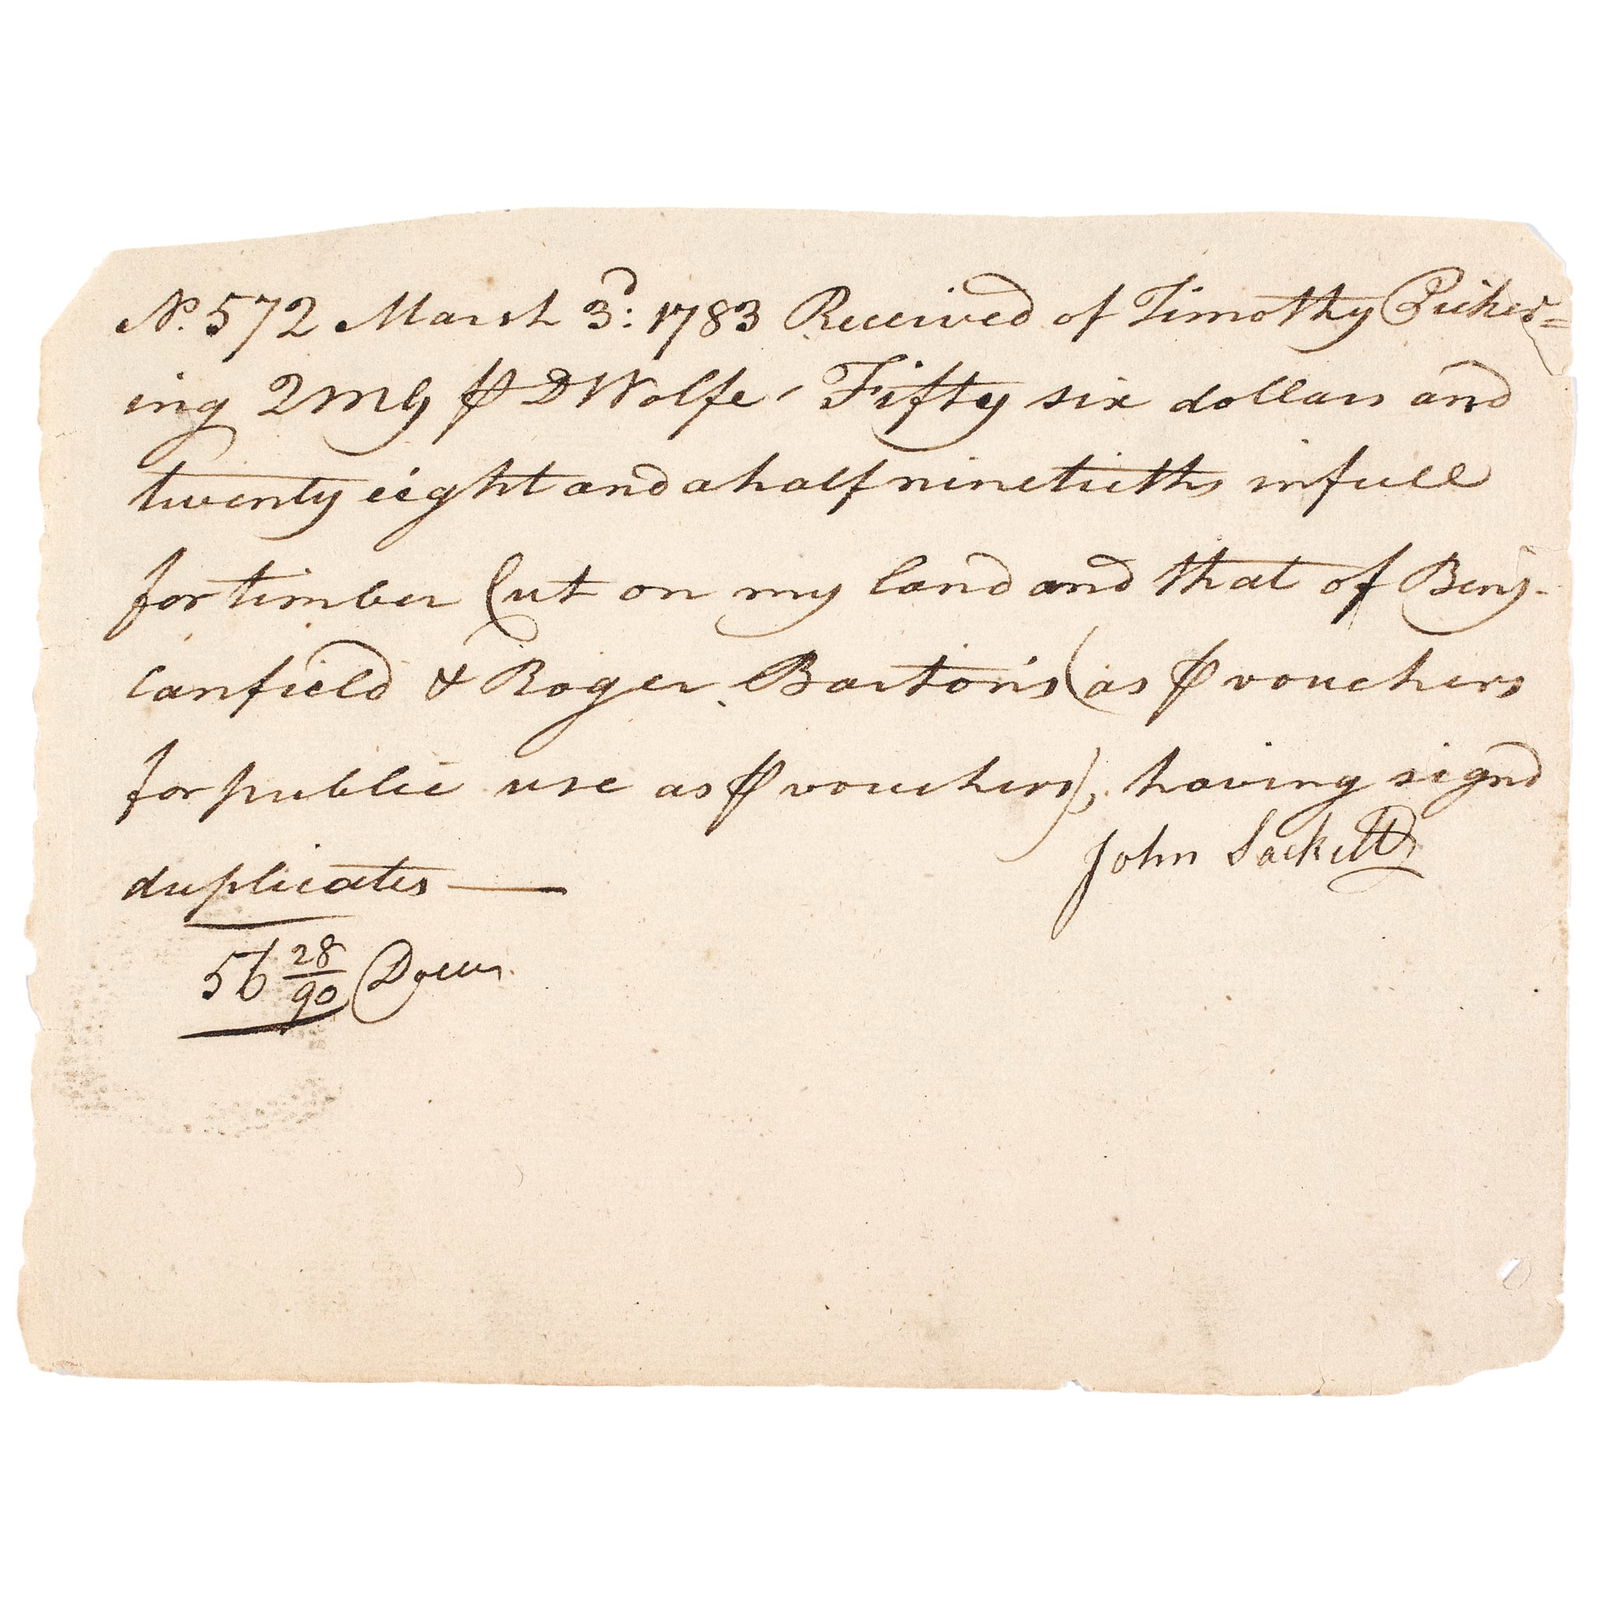 No. 572 March 3d: 1783 Received of Timothy Picker=
ing QMG ⅌ D Wolfe, Fifty six dollars and
twenty eight and a half ninetieths in full
for timber Cut on my land and that of Benj.
Canfield & Roger Barton's (as ⅌ vouchers
for public use as ⅌ vouchers), having signd
duplicates —
John Sackett
56 28/90 Dollrs.